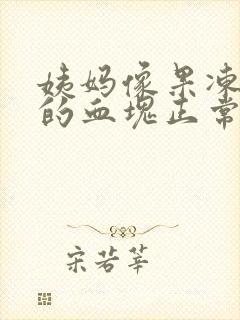 姨妈像果冻
的血块正常
宋若莘